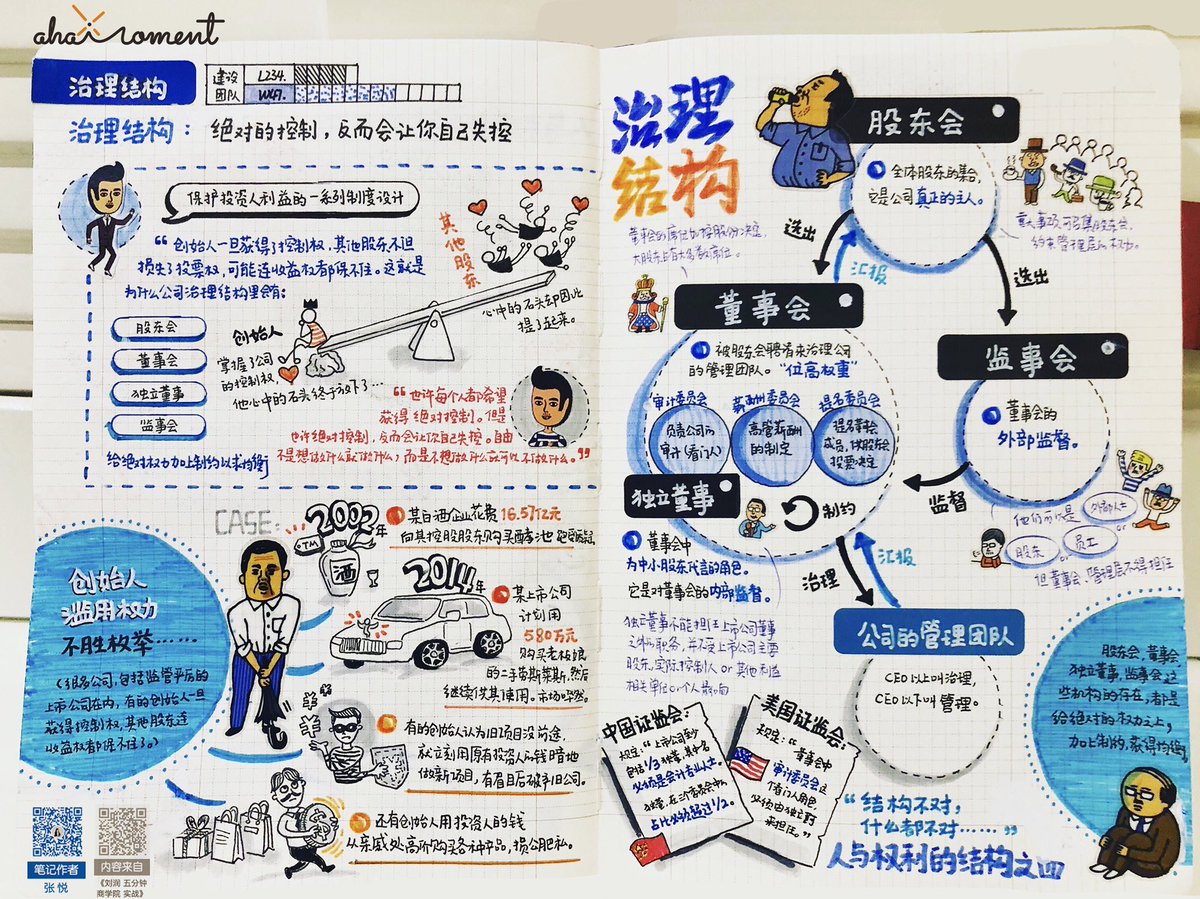 aha moment
治理结构
建设 L234.
团队
治理结构：绝对的控制，反而会让你自己失控
保护投资人利益的一系列制度设计
“创始人一旦获得了控制权，其他股东不但
损失了投票权，可能连收益权都保不住。这就是
为什么公司治理结构里会有：
股东会
董事会
独立董事
监事会
给绝对权力加上制约以求均衡
其他股东
心中的石头却因此
提了起来。
创始人
掌握了公司
的控制权，
他心中的石头终于放下了…
“也许每个人都希望
获得绝对控制。但是
也许绝对控制，反而会让你自己失控。自由
不是想做什么就做什么，而是不想做什么就可以不做什么。”
创始人
滥用权力
不胜枚举……
（很多公司，包括监管严厉的
上市公司在内，有的创始人一旦
获得控制权，其他股东连
收益权都保不住了。）
CASE：
2002年
TM
酒
某白酒企业花费16.57亿元
向其控股股东购买酵池
2014年
某上市公司
计划用
580万元
购买老板娘
的二手劳斯莱斯，然后
继续供其使用。市场哗然。
有的创始人认为旧项目没前途，
就立刻用原有投资人的钱暗地
做新项目，有眉目后破产旧公司。
还有创始人用投资人的钱
从亲戚处高价购买各种产品，损公肥私。
笔记作者
张悦
内容来自
《刘润 五分钟
商学院 实战》
治理
结构
股东会
全体股东的集合，
它是公司真正的主人。
重大事项可召集股东会，
约束管理层的权力。
董事会的席位如按股份决定，
大股东占有大多数席位。
选出
汇报
选出
董事会
被股东会聘请来治理公司
的管理团队。“位高权重”
审计委员会
负责公司的
审计（看门人）
薪酬委员会
高管薪酬
的制定
提名委员会
提名董事会
成员，供股东会
投票决定
监事会
董事会的
外部监督。
监督
他们可以是
外部人士
股东
or
员工
但董事会、管理层不得担任
独立董事
制约
董事会中
为中小股东代言的角色。
它是对董事会的内部监督。
独立董事不能担任上市公司董事
之外的职务，并不受上市公司主要
股东，实际控制人 or 其他利益
相关单位、个人影响
治理
汇报
公司的管理团队
CEO以上叫治理，
CEO以下叫管理。
中国证监会：
规定：“上市公司至少
包括1/3独董，其中名
必须是会计专业人士。
占比必须超过1/2。
美国证监会：
规定：“董事会中
审计委员会这
个看门人角色，
必须由独立董事
来担任。”
股东会，董事会，
独立董事，监事会这
些机构的存在，都是
给绝对的权力之上，
加上制约，获得均衡
“结构不对，
什么都不对……”
人与权利的结构之四